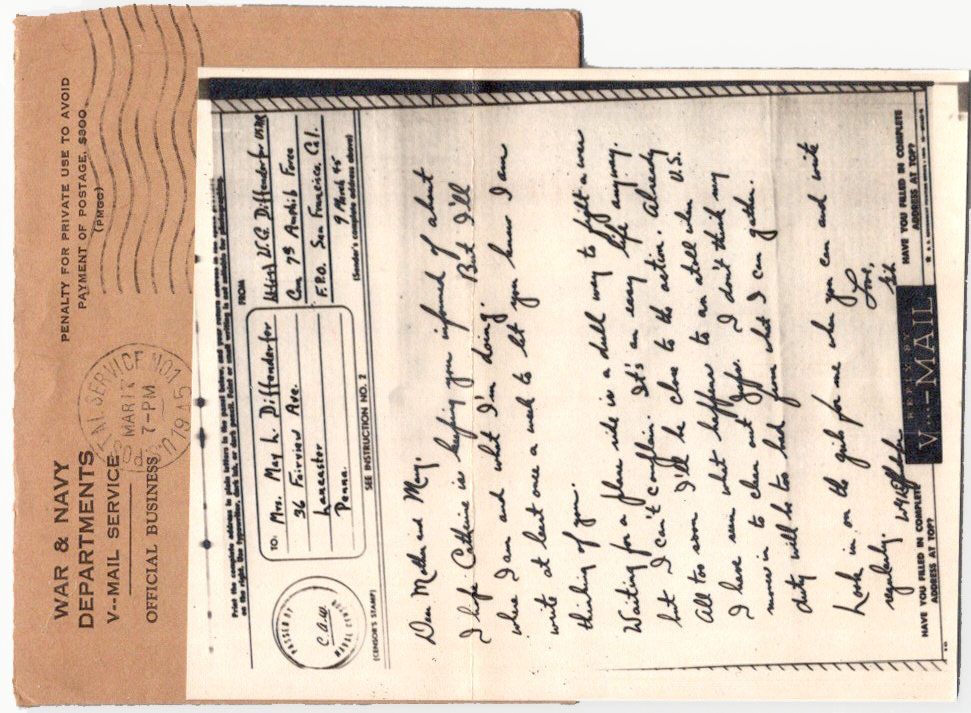 WAR & NAVY
DEPARTMENTS
V--MAIL SERVICE
OFFICIAL BUSINESS
PENALTY FOR PRIVATE USE TO AVOID
PAYMENT OF POSTAGE, $300
(PMGC)
SERVICE NO1
MAR 17
7-PM
1945
Print the complete address in plain letters in the panel below, and your return address in the space
on the right. Use typewriter, dark ink, or dark pencil. Faint or small writing is not suitable for photographing.
PASSED BY
C.A.W.
NAVAL CENSOR
(CENSOR'S STAMP)
TO:
Mrs. May L. Diffenderfer
36 Fairview Ave.
Lancaster
Penna.
SEE INSTRUCTION NO. 2
FROM
W.G. Diffenderfer USNR
Com 7th Amphib Force
F.P.O. San Francisco, Cal.
9 March 45
(Sender's complete address above)
Dear Mother and May,
I hope Catherine is keeping you informed of about
where I am and what I'm doing. But I'll
write at least once a week to let you know I am
thinking of you.
Waiting for a plane ride is a dull way to fight a war
but I can't complain. It's an easy life anyway.
All too soon I'll be close to the action. Already
I have seen what happens to an atoll when U.S.
moves in to clean out Japs. I don't think my
duty will be too bad from what I can gather.
Look in on the girls for me when you can and write
regularly.
Love,
HAVE YOU FILLED IN COMPLETE
ADDRESS AT TOP?
V...-MAIL
HAVE YOU FILLED IN COMPLETE
ADDRESS AT TOP?